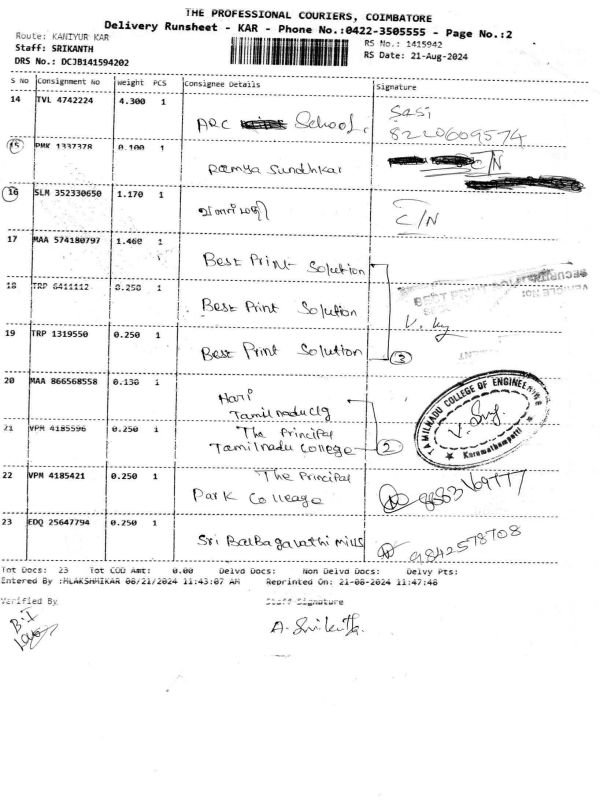 THE PROFESSIONAL COURIERS, COIMBATORE
Delivery Runsheet - KAR - Phone No.:0422-3505555 - Page No.:2
Route: KANIYUR KAR
RS No.: 1415942
Staff: SRIKANTH
RS Date: 21-Aug-2024
DRS No.: DCJB141594202
S No Consignment No Weight PCS Consignee Details Signature
14 TVL 4742224 4.300 1
ARC School. Sasi
8220609574
15 PMK 1337378 0.100 1
Ramya Sundhkar C/N
16 SLM 352330650 1.170 1
C/N
17 MAA 574180797 1.460 1
Best Print Solution
18 TRP 6411112 0.250 1
Best Print Solution
19 TRP 1319550 0.250 1
Best Print Solution 3
20 MAA 866568558 0.130 1
Hari
Tamilnadu Clg
TAMILNADU COLLEGE OF ENGINEERING
Karumathampatti
21 VPM 4185596 0.250 1
The Principal
Tamilnadu College 2
22 VPM 4185421 0.250 1
The Principal
Park Colleage
23 EDQ 25647794 0.250 1
Sri BalBagavathi Mills 9842578708
Tot Docs: 23 Tot COD Amt: 0.00 Delvd Docs: Non Delvd Docs: Delvy Pts:
Entered By :MLAKSHMIKAR 08/21/2024 11:43:07 AM Reprinted On: 21-08-2024 11:47:48
Verified By Staff Signature
A. Srikanth.